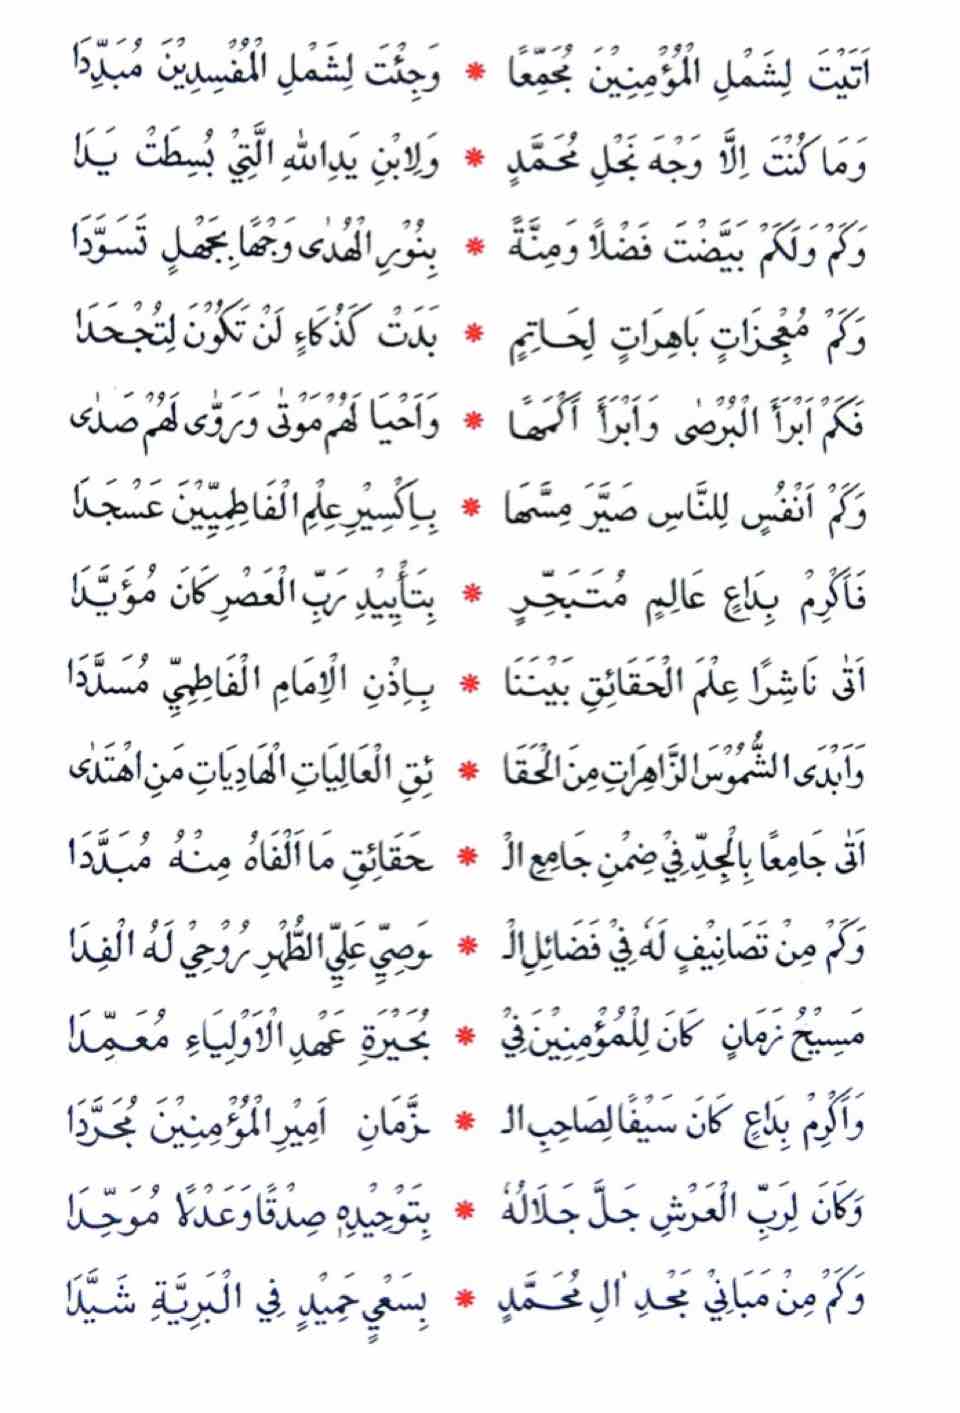 اَتَيْتَ لِشَمْلِ الْمُؤْمِنِيْنَ مُجَمِّعًا * وَجِئْتَ لِشَمْلِ الْمُفْسِدِيْنَ مُبَدِّدَا
وَمَا كُنْتَ اِلَّا وَجْهَ نَجْلِ مُحَمَّدٍ * وَلِابْنِ يَدِ اللهِ الَّتِيْ بُسِطَتْ يَدَا
وَكَمْ وَلَكَمْ بَيَّضْتَ فَضْلًا وَمِنَّةً * بِنُوْرِ الْهُدٰى وَجْهًا بِجَهْلٍ تَسَوَّدَا
وَكَمْ مُعْجِزَاتٍ بَاهِرَاتٍ لِحَاتِمٍ * بَدَتْ كَذُكَاءٍ لَنْ تَكُوْنَ لِتُجْحَدَا
فَكَمْ اَبْرَأَ الْبُرْصٰى وَاَبْرَأَ أَكْمَهًا * وَاَحْيَا لَهُمْ مَوْتٰى وَرَوّٰى لَهُمْ صَدٰى
وَكَمْ اَنْفُسٍ لِلنَّاسِ صَيَّرَ مِسَّهَا * بِاِكْسِيْرِ عِلْمِ الْفَاطِمِيِّيْنَ عَسْجَدَا
فَاَكْرِمْ بِدَاعٍ عَالِمٍ مُتَبَحِّرٍ * بِتَأْيِيْدِ رَبِّ الْعَصْرِ كَانَ مُؤَيَّدَا
اَتٰى نَاشِرًا عِلْمَ الْحَقَائِقِ بَيْنَنَا * بِاِذْنِ الْاِمَامِ الْفَاطِمِيِّ مُسَدَّدَا
وَاَبْدَى الشُّمُوْسَ الزَّاهِرَاتِ مِنَ الْحَقَا * ئِقِ الْعَالِيَاتِ الْهَادِيَاتِ مَنِ اهْتَدٰى
اَتٰى جَامِعًا بِالْجِدِّ فِيْ ضِمْنِ جَامِعِ الْـ * ـحَقَائِقِ مَا اَلْفَاهُ مِنْهُ مُبَدَّدَا
وَكَمْ مِنْ تَصَانِيْفٍ لَهٗ فِيْ فَضَائِلِ الْـ * ـوَصِيِّ عَلِيِّ الطُّهْرِ رُوْحِيْ لَهُ الْفِدَا
مَسِيْحُ زَمَانٍ كَانَ لِلْمُؤْمِنِيْنَ فِيْ * بُحَيْرَةِ عَهْدِ الْاَوْلِيَاءِ مُعَمِّدَا
وَاَكْرِمْ بِدَاعٍ كَانَ سَيْفًا لِصَاحِبِ الـ * ـزَّمَانِ اَمِيْرِ الْمُؤْمِنِيْنَ مُجَرَّدَا
وَكَانَ لِرَبِّ الْعَرْشِ جَلَّ جَلَالُهٗ * بِتَوْحِيْدِهٖ صِدْقًا وَعَدْلًا مُوَحِّدَا
وَكَمْ مِنْ مَبَانِيْ مَجْدِ اٰلِ مُحَمَّدٍ * بِسَعْيٍ حَمِيْدٍ فِي الْبَرِيَّةِ شَيَّدَا